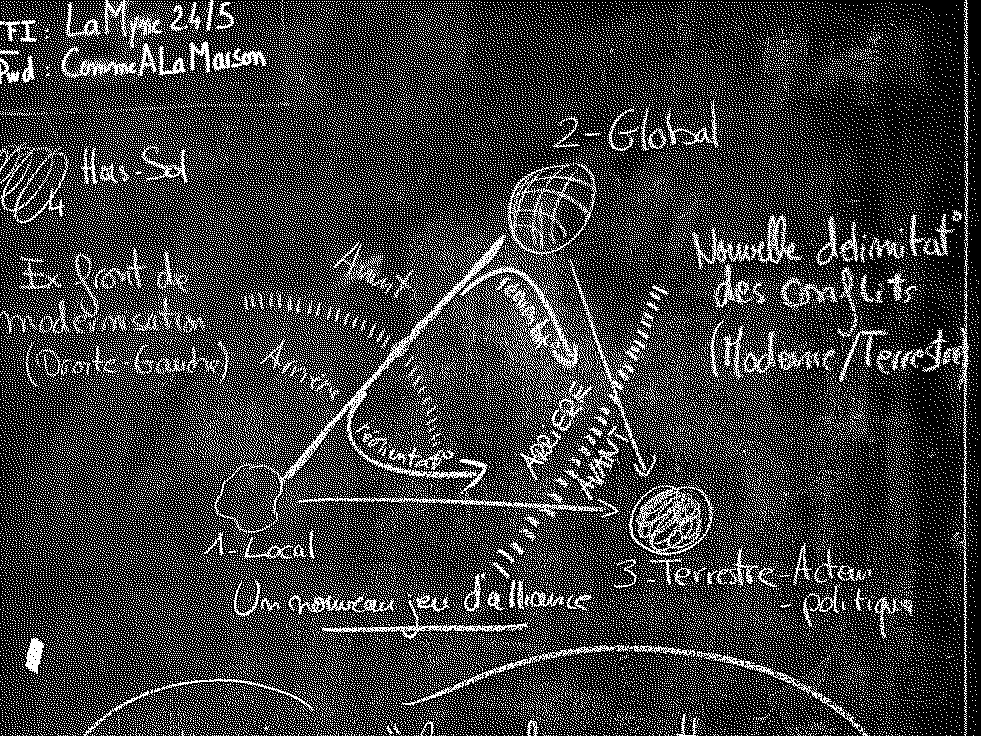 FI : LaMyne 24/5
Pwd : CommeALaMaison
2-Global
4
Hors-Sol
Nouvelle délimitat°
des conflits
(Moderne/Terrestre)
Ex front de
modernisation
(Droite Gauche)
Avant
Arrière
ARRIERE
AVANT
1-Local
3-Terrestre-Acteur
-politique
Un nouveau jeu d'alliance